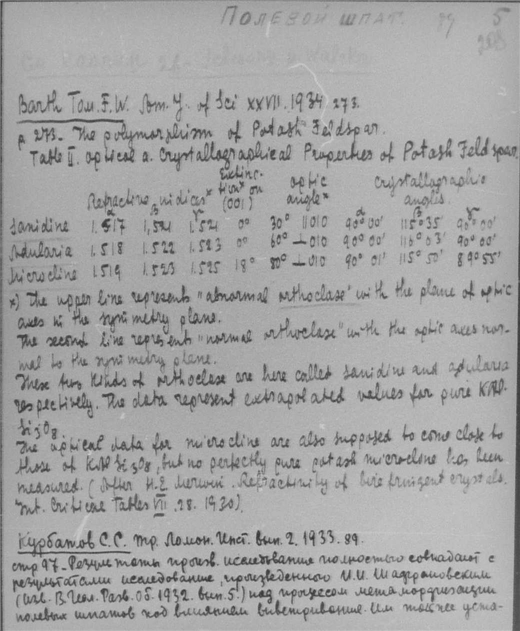 Полевой шпат. 5
Barth Tom. F. W. Am. J. of Sci XXVII. 1934 273.
p. 273 - The polymorphism of Potash Feldspar.
Table II. optical a. Crystallographical Properties of Potash Feldspar
Refractive indices* Extinction* on (001) optic angle* crystallographic angles.
α β γ α β γ
Sanidine 1.517 1,521 1.521 0° 30° ||010 90°00' 115°35' 90°00'
Adularia 1.518 1.522 1.523 0° 60° ⊥010 90°00' 116°03' 90°00'
Microcline 1.519 1.523 1.525 18° 80° ⊥010 90°01' 115°50' 89°55'
x) The upper line represents "abnormal orthoclase" with the plane of optic
axes in the symmetry plane.
The second line represents "normal orthoclase" with the optic axes nor-
mal to the symmetry plane.
These two kinds of orthoclase are here called sanidine and adularia
respectively. The data represent extrapolated values for pure KAl-
Si3O8
The optical data for microcline are also supposed to come close to
those of KAlSi3O8, but no perfectly pure potash microcline has been
measured. (After H.E. Merwin. Refractinity of birefringent crystals.
Int. Critical Tables VII. 28. 1930).
Курбатов С.С. Тр. Ломон. Инст. вып. 2. 1933. 89.
стр 97 - Результаты произв. исследование полностью совпадают с
результатами исследование, произведенного И.И. Шафрановским
(Изв. В. Геол. Разв. Об. 1932. вып. 5!) над процессом метаморфизации
полевых шпатов под влиянием выветривание. Им также уста-